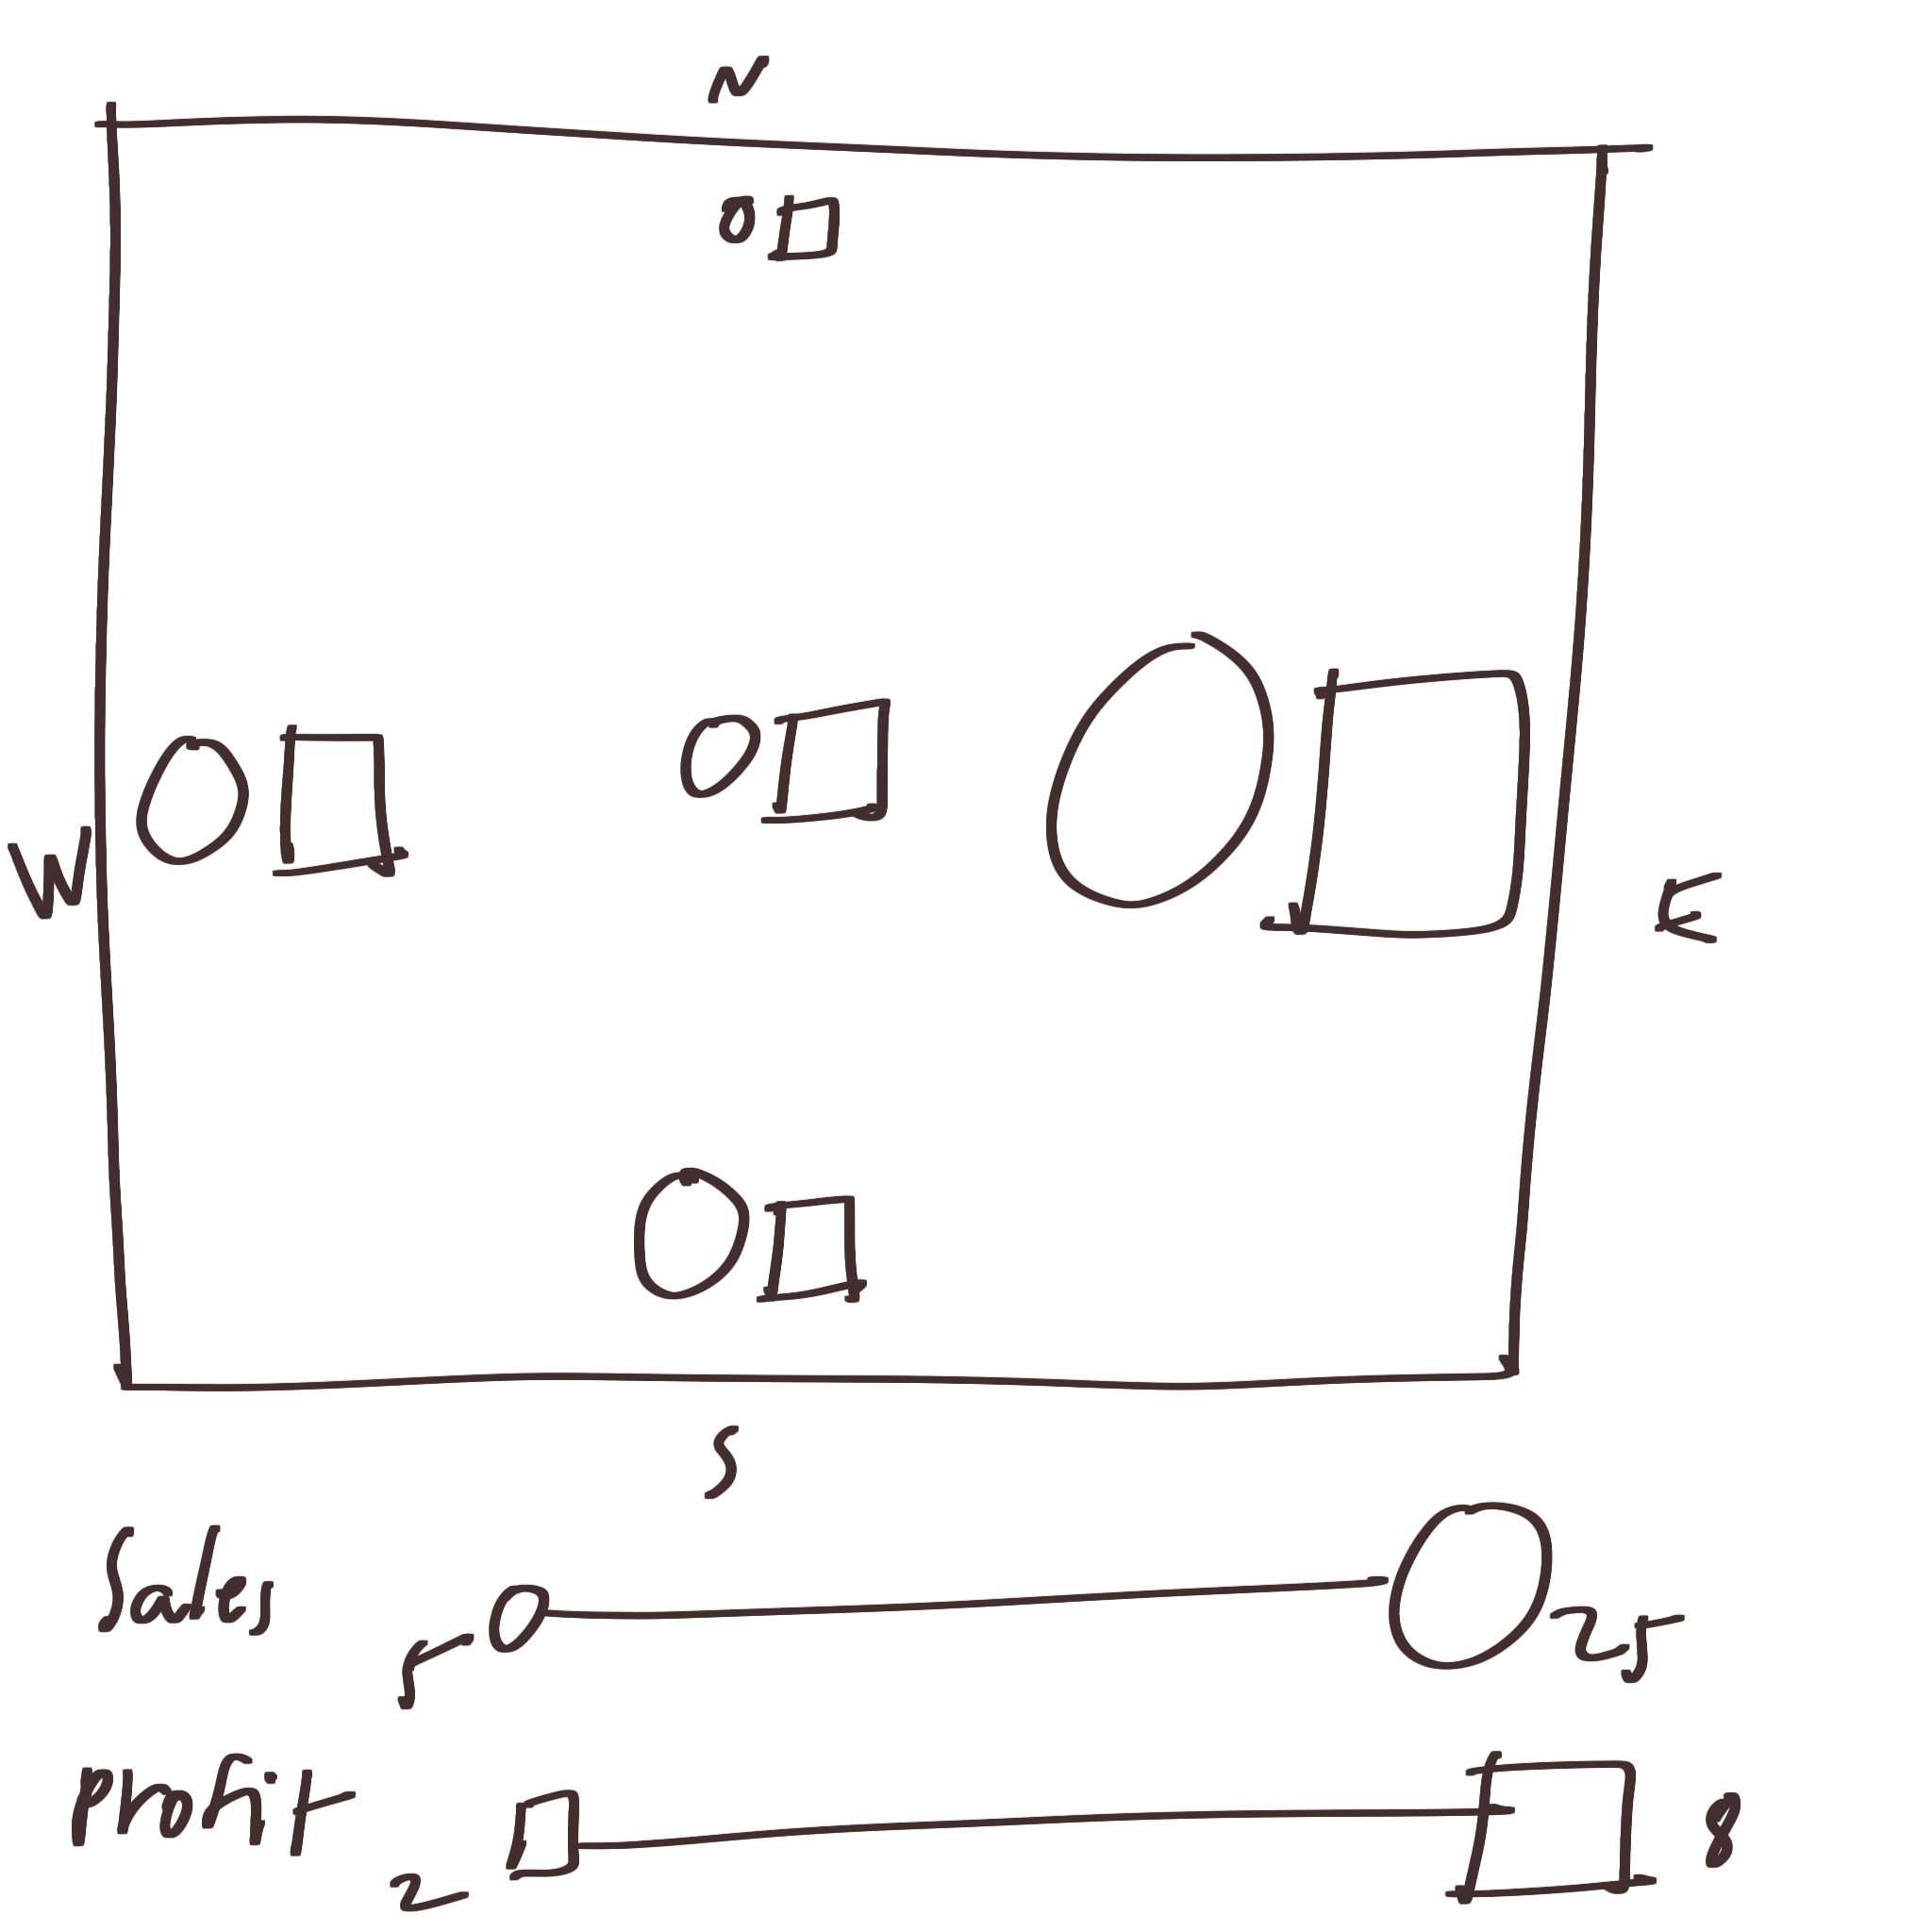 N
W
E
S
Sales
5 25
Profit
2 8